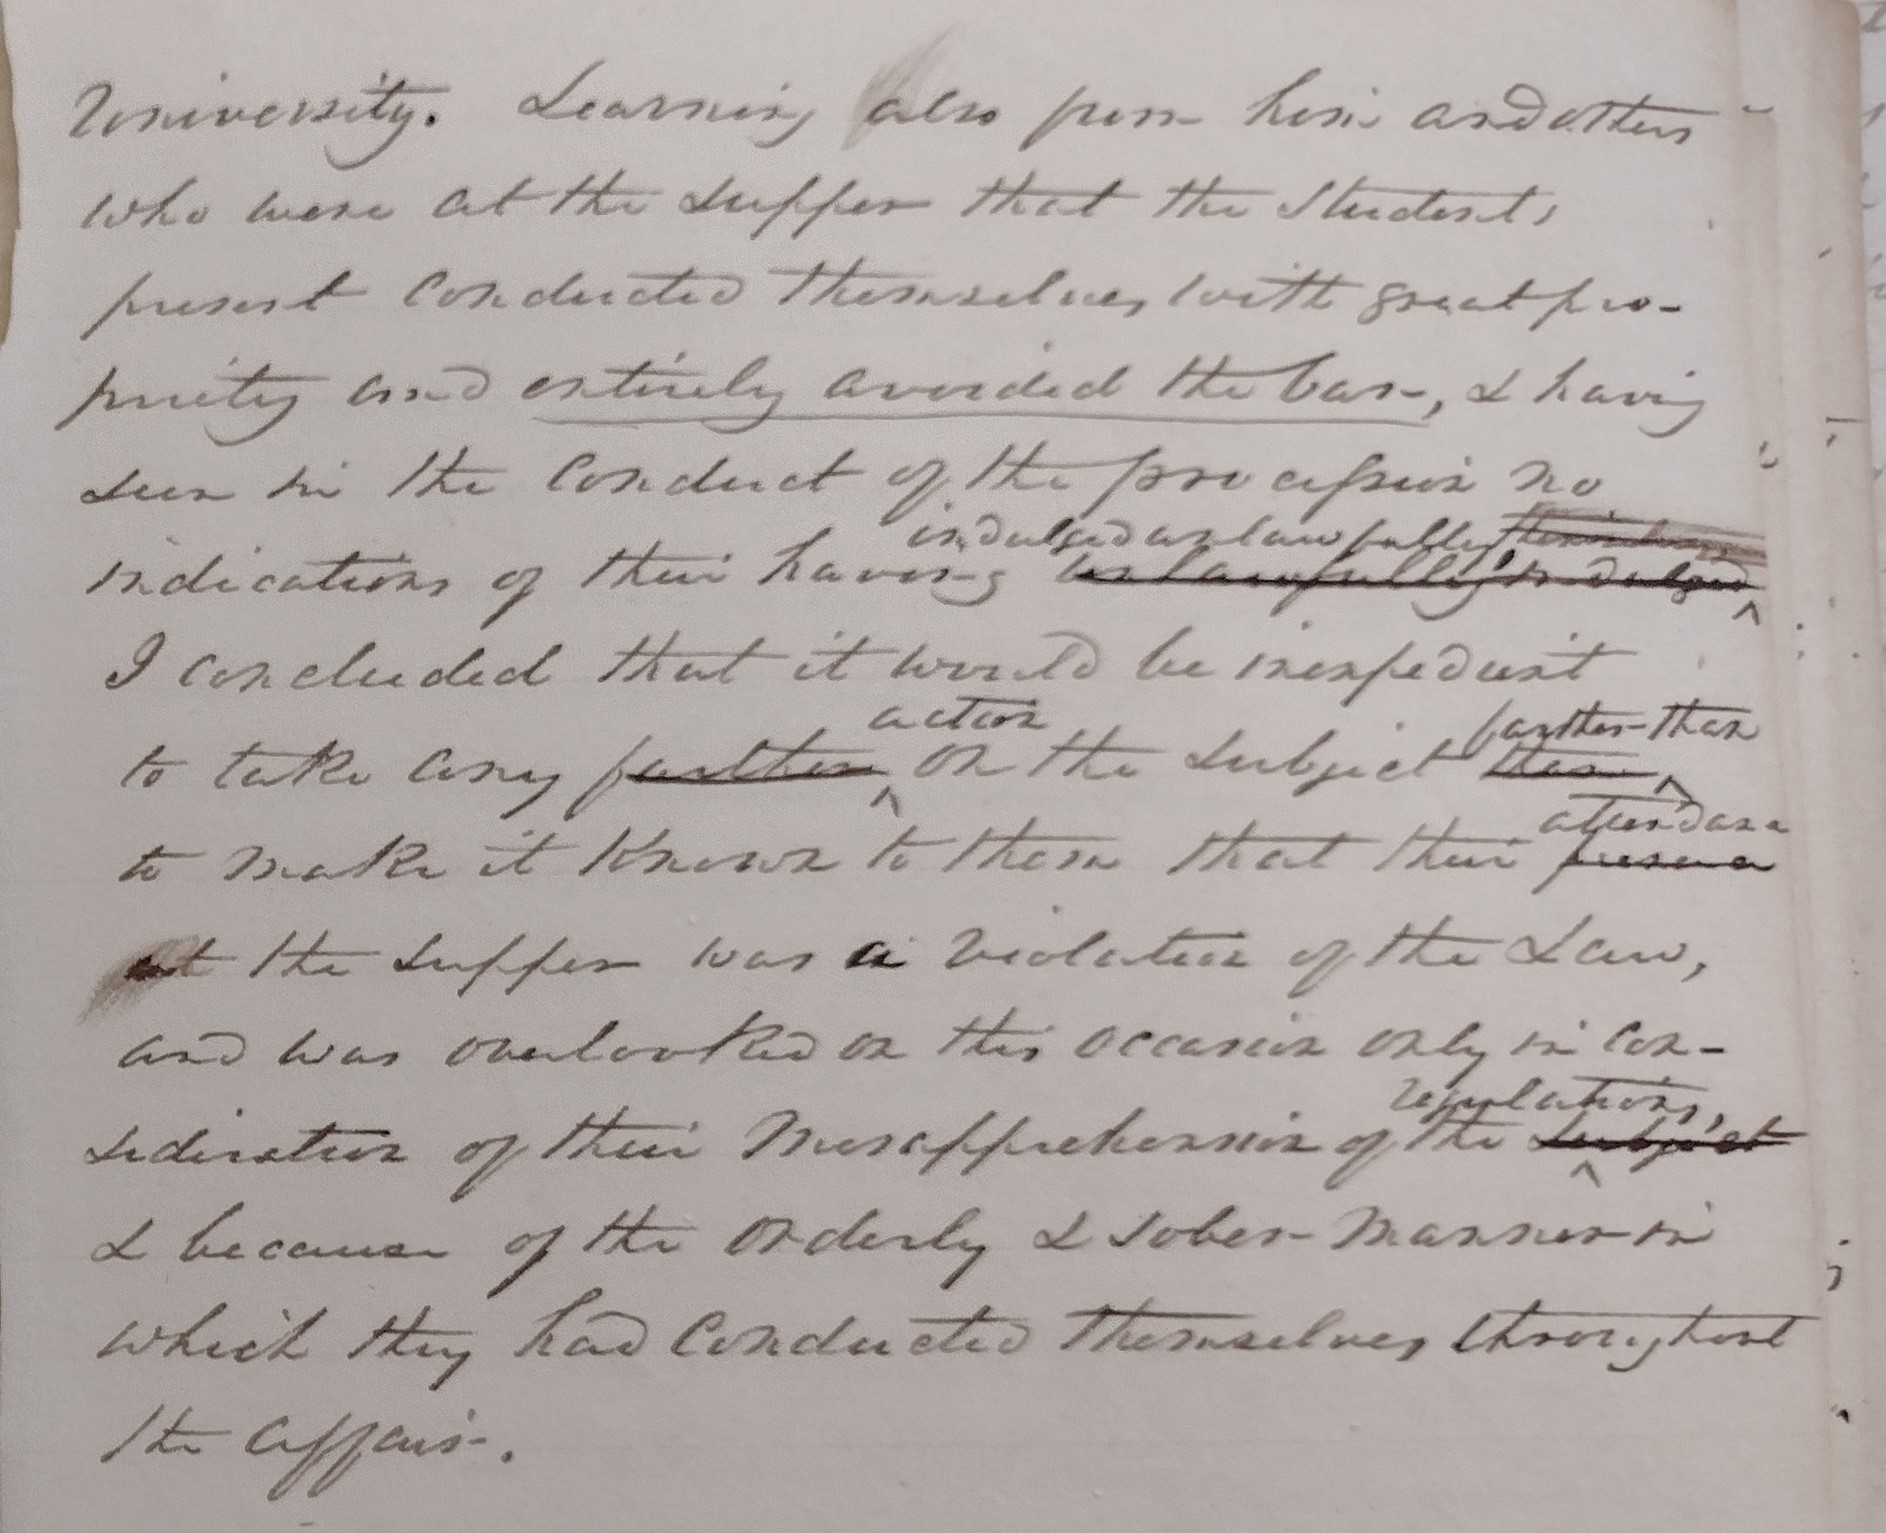 University. Learning also from him and others
who were at the supper that the Students
present conducted themselves with great pro-
priety and entirely avoided the bar, & having
seen in the conduct of the procession no
indulged unlawfully
indications of their having unlawfully indulged
I concluded that it would be inexpedient
action farther than
to take any farther on the subject than
attendance
to make it known to them that their presence
at the supper was a violation of the Law,
and was overlooked on this occasion only in con-
regulations,
sideration of their misapprehension of the subject
& because of the orderly & sober manner in
which they had conducted themselves throughout
the affair.